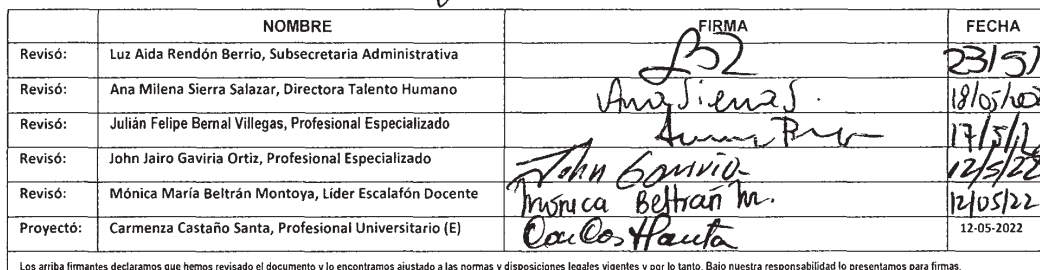 NOMBRE FIRMA FECHA
Revisó: Luz Aida Rendón Berrio, Subsecretaria Administrativa 23/5/
Revisó: Ana Milena Sierra Salazar, Directora Talento Humano Ana Sierra S. 18/05/
Revisó: Julián Felipe Bernal Villegas, Profesional Especializado 17/5/
Revisó: John Jairo Gaviria Ortiz, Profesional Especializado John Gaviria 12/5/22
Revisó: Mónica María Beltrán Montoya, Líder Escalafón Docente Mónica Beltrán M. 12/05/22
Proyectó: Carmenza Castaño Santa, Profesional Universitario (E) 12-05-2022
Los arriba firmantes declaramos que hemos revisado el documento y lo encontramos ajustado a las normas y disposiciones legales vigentes y por lo tanto. Bajo nuestra responsabilidad lo presentamos para firmas.